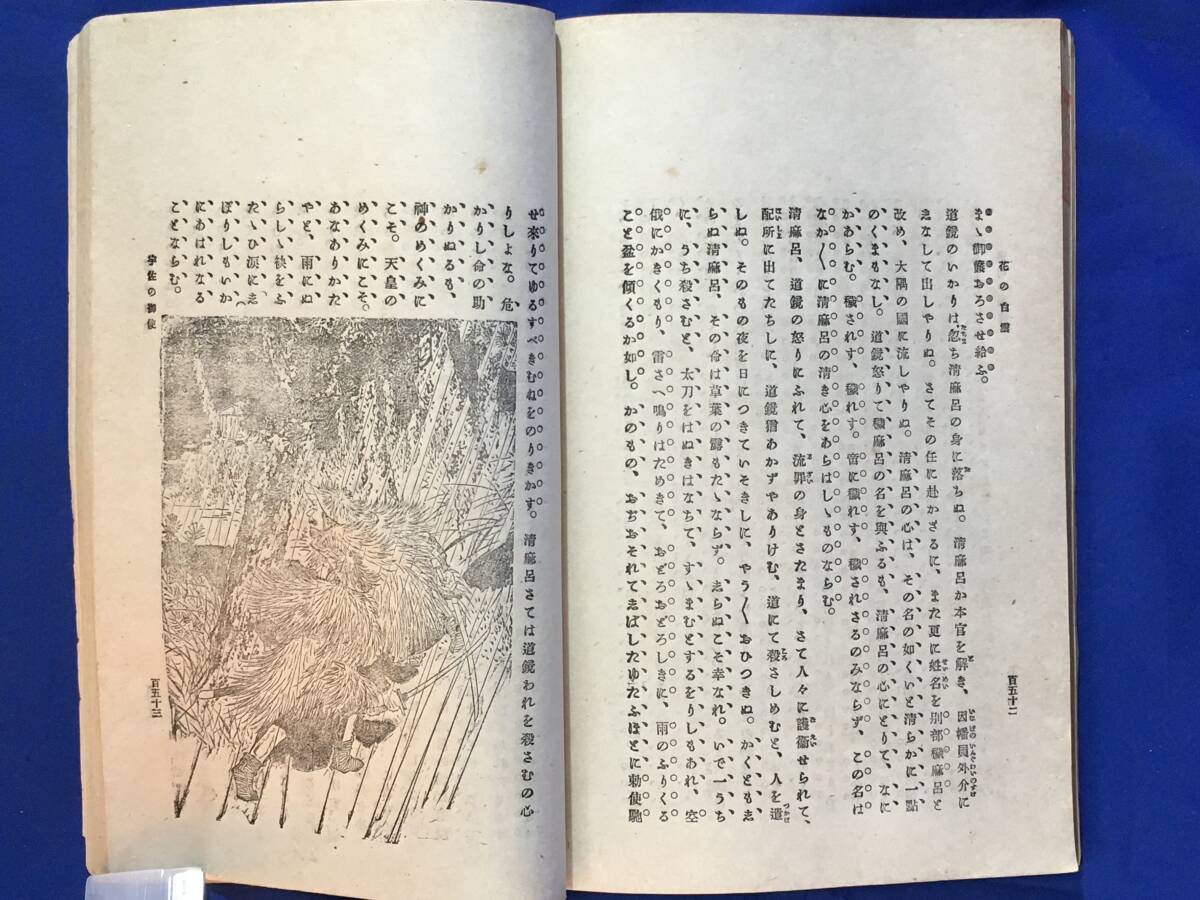 花の白雲
まゝ御髪おろさせ給ふ。
道鏡のいかりは、忽ち清麻呂の身に落ちぬ。清麻呂か本官を解き、因幡員外介に
えなして出しやりぬ。さてその任に赴かざるに、また更に姓名を別部穢麻呂と
改め、大隅の國に流しやりぬ。清麻呂の心は、その名の如くいと清らかに一點
のくまもなし。道鏡怒りて穢麻呂の名を與ふるも、清麻呂の心にとりて、なに
かあらむ。穢されす、穢れす。啻に穢れす、穢されさるのみならず、この名は
なか〳〵に清麻呂の清き心をあらはしゝものならむ。
清麻呂、道鏡の怒りにふれて、流罪の身とさたまり、さて人々に護衞せられて、
配所に出てたちしに、道鏡猶あかずやありけむ、道にて殺さしめむと、人を遣
しぬ。そのもの夜を日につきていそきしに、やう〳〵おひつきぬ。かくともえ
らぬ清麻呂、その命は草葉の露もたゝならず。えらぬこそ幸なれ。いで一うち
に、うち殺さむと、太刀をはぬきはなちて、すゝまむとするをりしもあれ、空
俄にかきくもり、雷さへ鳴りはためきて、おどろおどろしきに、雨のふりくる
こと盆を傾くるか如し。かのもの、おぢおそれてえばしたゆたふほとに勅使馳
百五十二
せ來りてゆるすべきむねをのりきかす。清麻呂さては道鏡われを殺さむの心
りしよな。危
かりし命の助
かりぬるも、
神のめくみに
こそ。天皇の
めくみにこそ。
あなありかた
やと、雨にぬ
らしゝ袂をふ
たゝひ涙にえ
ぼりしもいか
にあはれなる
ことならむ。
宇佐の御使
百五十三